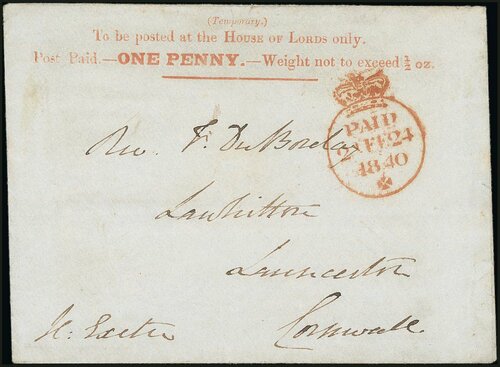 (Temporary.)
To be posted at the HOUSE OF LORDS only.
Post Paid.—ONE PENNY.—Weight not to exceed ½ oz.
PAID
24 FE 24
1840
Rev. F. Du Boulay
Lawhitton
Launceston
Cornwall.
H: Exeter